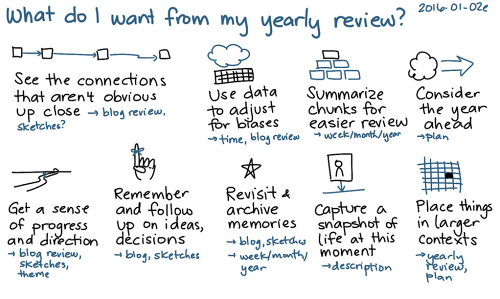 What do I want from my yearly review?
2016-01-02e
See the connections
that aren't obvious
up close → blog review,
sketches?
Use data
to adjust
for biases
→ time, blog review
Summarize
chunks for
easier review
→ week/month/year
Consider
the year
ahead
→ plan
Get a sense
of progress
and direction
→ blog review,
sketches,
theme
Remember
and follow
up on ideas,
decisions
→ blog, sketches
Revisit &
archive
memories
→ blog, sketches
→ week/month/
year
Capture a
snapshot of
life at this
moment
→ description
Place things
in larger
contexts
→ yearly
review,
plan